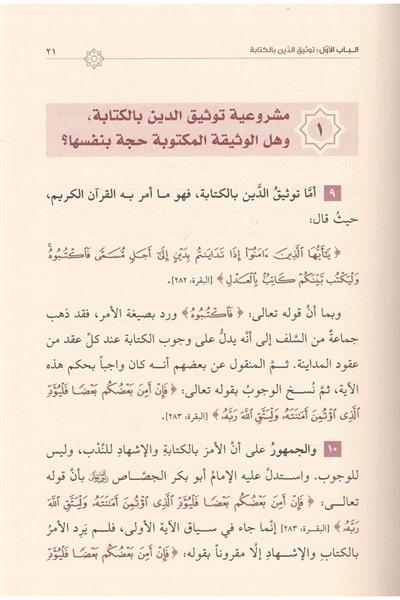 الباب الأول: توثيق الدّين بالكتابة
٢١
١
مشروعية توثيق الدين بالكتابة،
وهل الوثيقة المكتوبة حجة بنفسها؟
٩ أمَّا توثيقُ الدَّين بالكتابة، فهو ما أمر به القرآن الكريم،
حيثُ قال:
﴿ يَٰٓأَيُّهَا ٱلَّذِينَ ءَامَنُوٓا۟ إِذَا تَدَايَنتُم بِدَيْنٍ إِلَىٰٓ أَجَلٍ مُّسَمًّى فَٱكْتُبُوهُ ۚ
وَلْيَكْتُب بَّيْنَكُمْ كَاتِبٌۢ بِٱلْعَدْلِ ﴾ [البقرة: ٢٨٢].
وبما أنَّ قوله تعالى: ﴿ فَٱكْتُبُوهُ ﴾ ورد بصيغة الأمر، فقد ذهب
جماعةٌ من السَّلف إلى أنَّه يدلُّ على وجوب الكتابة عند كلِّ عقد من
عقود المداينة. ثمَّ المنقول عن بعضهم أنــه كان واجباً بحكم هذه
الآية، ثمَّ نُسـخ الوجوبُ بقوله تعالى: ﴿ فَإِنْ أَمِنَ بَعْضُكُم بَعْضًا فَلْيُؤَدِّ
ٱلَّذِى ٱؤْتُمِنَ أَمَٰنَتَهُۥ وَلْيَتَّقِ ٱللَّهَ رَبَّهُۥ ﴾ [البقرة: ٢٨٣].
١٠ والجمهورُ على أنَّ الأمرَ بالكتابة والإشهاد للنَّدْب، وليس
للوجوب. واستدلَّ عليه الإمامُ أبو بكر الجصَّاص بأنَّ قوله
تعالــى: ﴿ فَإِنْ أَمِنَ بَعْضُكُم بَعْضًا فَلْيُؤَدِّ ٱلَّذِى ٱؤْتُمِنَ أَمَٰنَتَهُۥ وَلْيَتَّقِ ٱللَّهَ
رَبَّهُۥ ﴾ [البقرة: ٢٨٣] إنَّما جاء في سياق الآية الأولى، فلــم يَرِدِ الأمرُ
بالكتابِ والإشـهادِ إلَّا مقروناً بقوله: ﴿ فَإِنْ أَمِنَ بَعْضُكُم بَعْضًا فَلْيُؤَدِّ